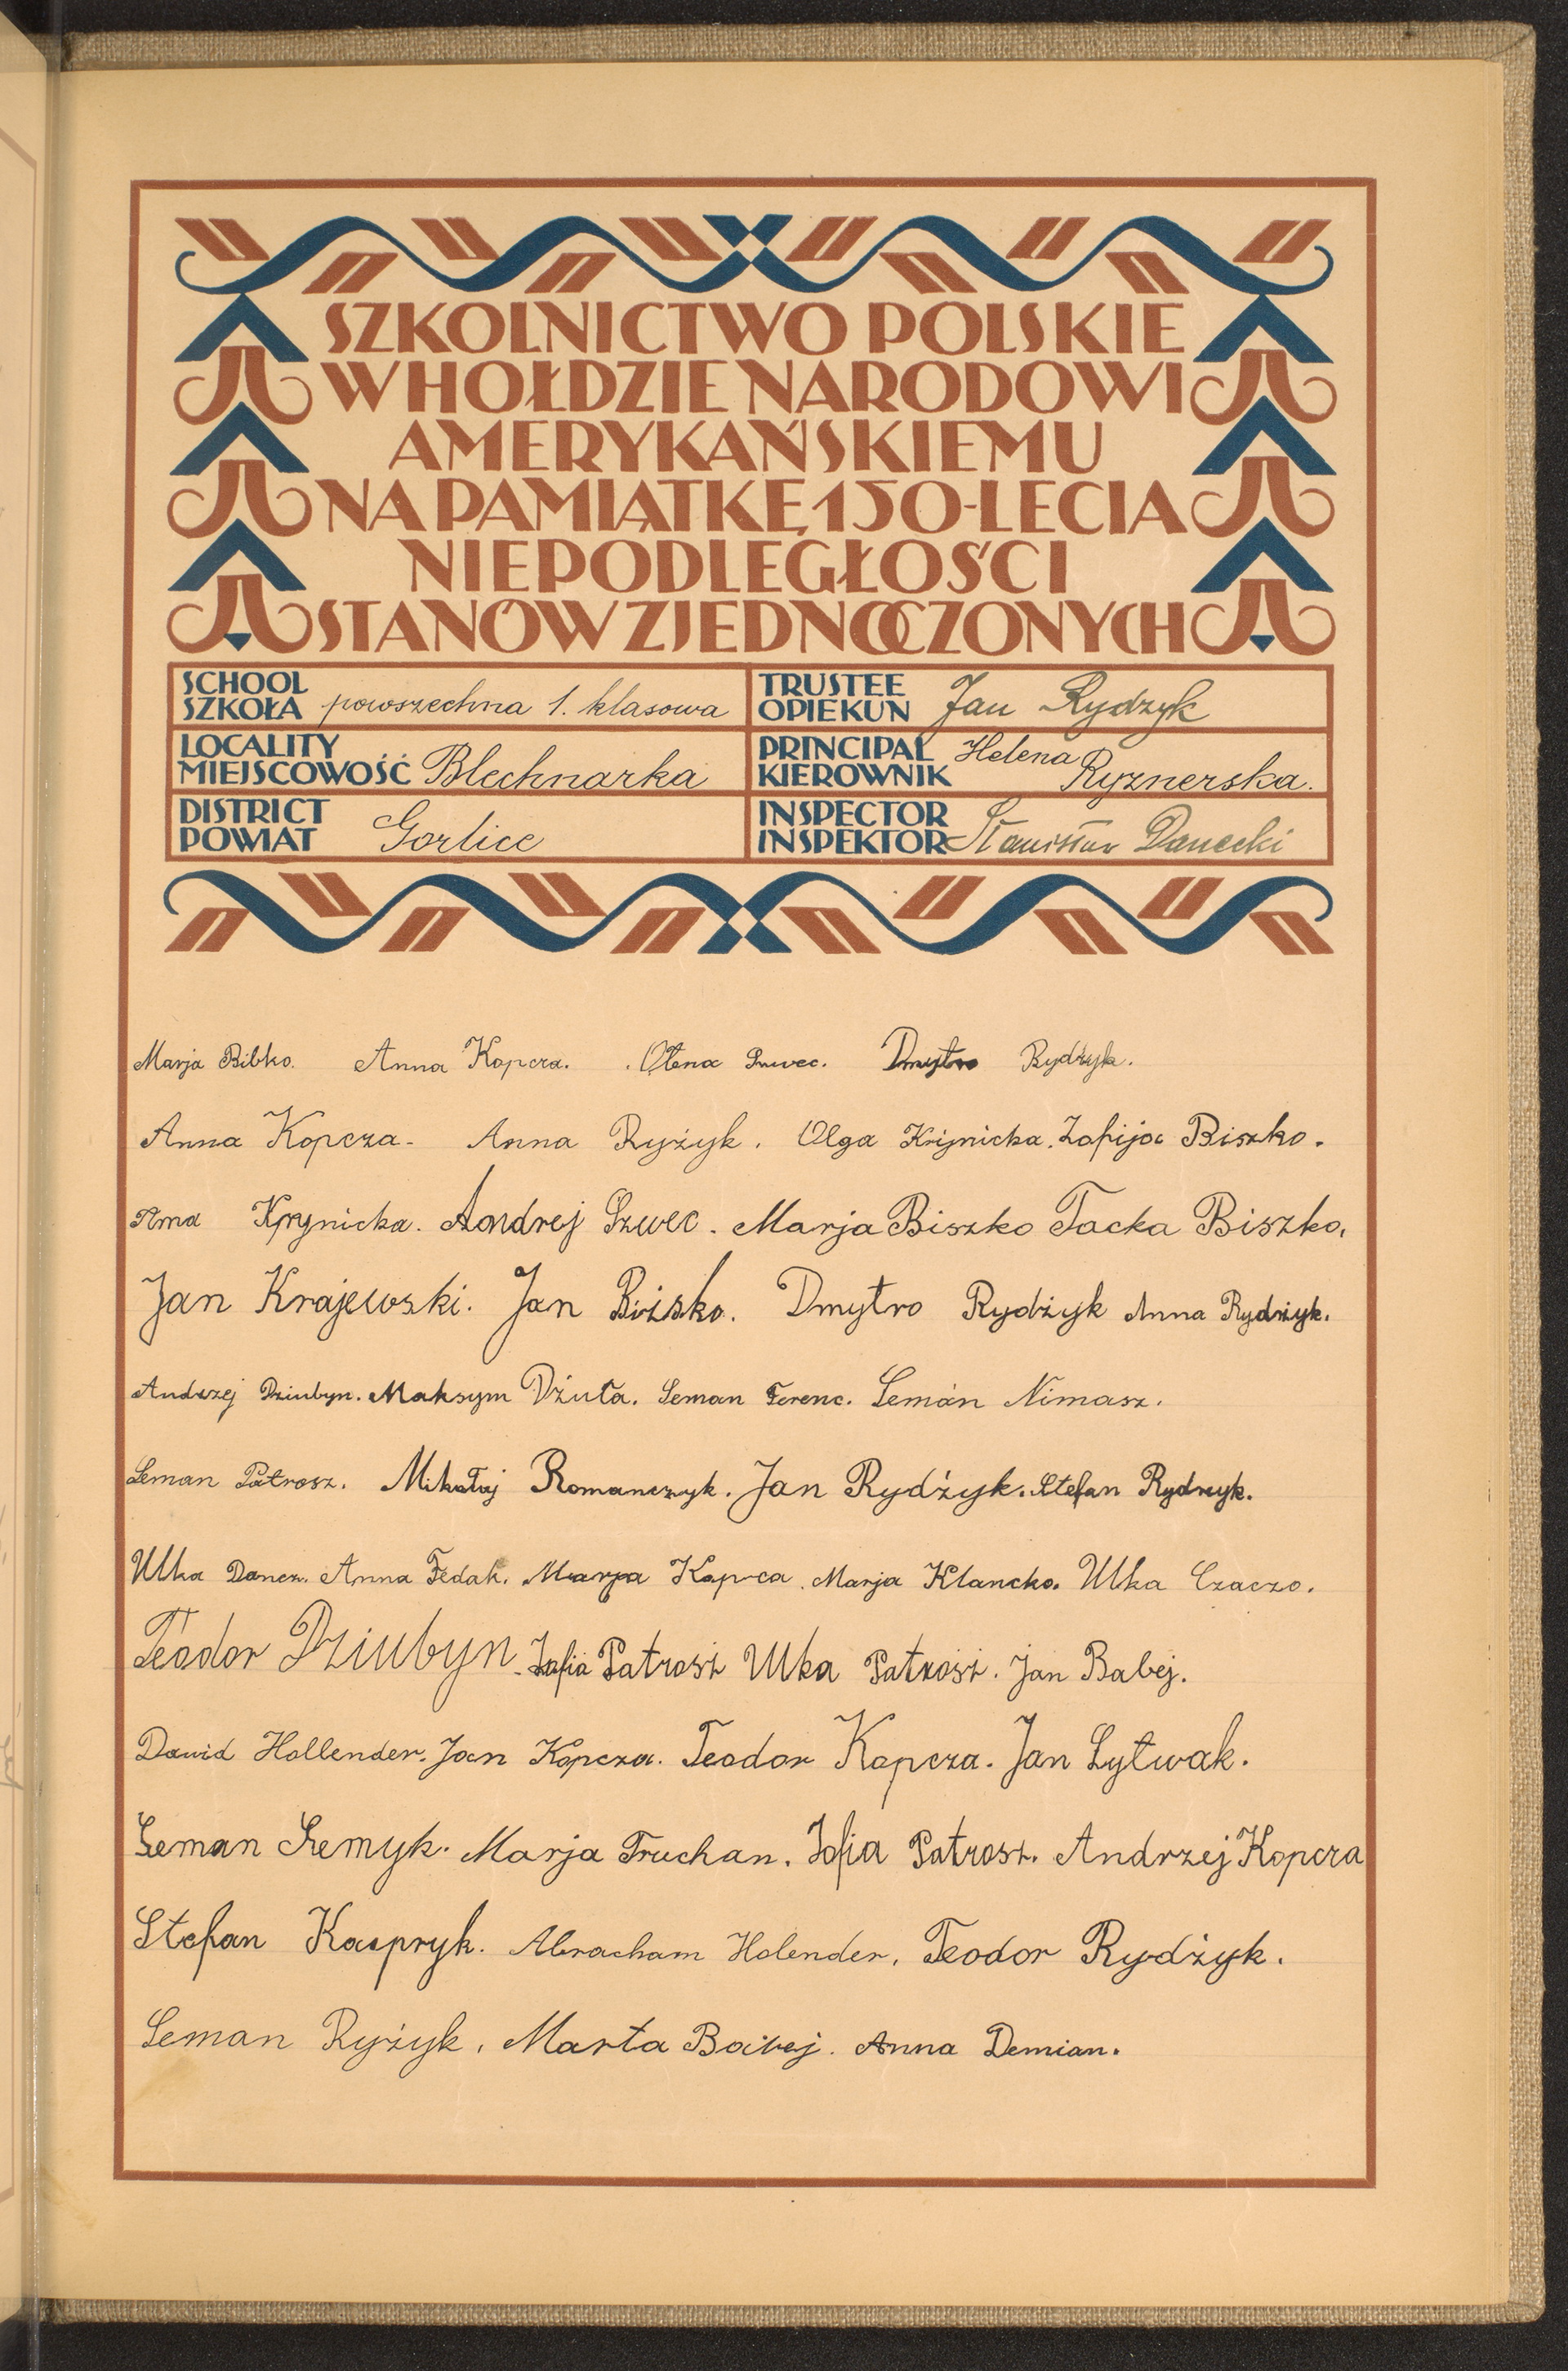 SZKOLNICTWO POLSKIE
W HOŁDZIE NARODOWI
AMERYKAŃSKIEMU
NA PAMIĄTKĘ 150-LECIA
NIEPODLEGŁOŚCI
STANÓW ZJEDNOCZONYCH
SCHOOL
SZKOŁA powszechna 1. klasowa
TRUSTEE
OPIEKUN Jan Rydzyk
LOCALITY
MIEJSCOWOŚĆ Blechnarka
PRINCIPAL
KIEROWNIK Helena Ryznerska.
DISTRICT
POWIAT Gorlice
INSPECTOR
INSPEKTOR Stanisław Danecki
Marja Bibko. Anna Kopcza. Olena Dmytro Rydżyk.
Anna Kopcza. Anna Ryżyk. Olga Krijnicka. Zofija Biszko.
Krynicka. Andrej Szwec. Marja Biszko Tacka Biszko.
Jan Krajewski. Jan Dmytro Rydżyk Anna Rydżyk.
Andrzej Dziubyn. Maksym Dżuła. Seman Ferenc. Semán Nimasz.
Seman Patrosz. Mikołaj Romanczyk. Jan Rydżyk. Stefan Rydzyk.
Ulka Dancz. Anna Fedak. Marja Kapca. Marja Klancko. Ulka Czaczo.
Teodor Dziubyn. Zofia Patrosz Ulka Patrosz. Jan Babej.
Dawid Hollender. Jan Kopcza. Teodor Kopcza. Jan Lytwak.
Seman Szemyk. Marja Truchan. Zofia Patrosz. Andrzej Kopcza
Stefan Kaspryk. Abracham Holender. Teodor Rydżyk.
Seman Ryżyk. Marta Babej. Anna Demian.